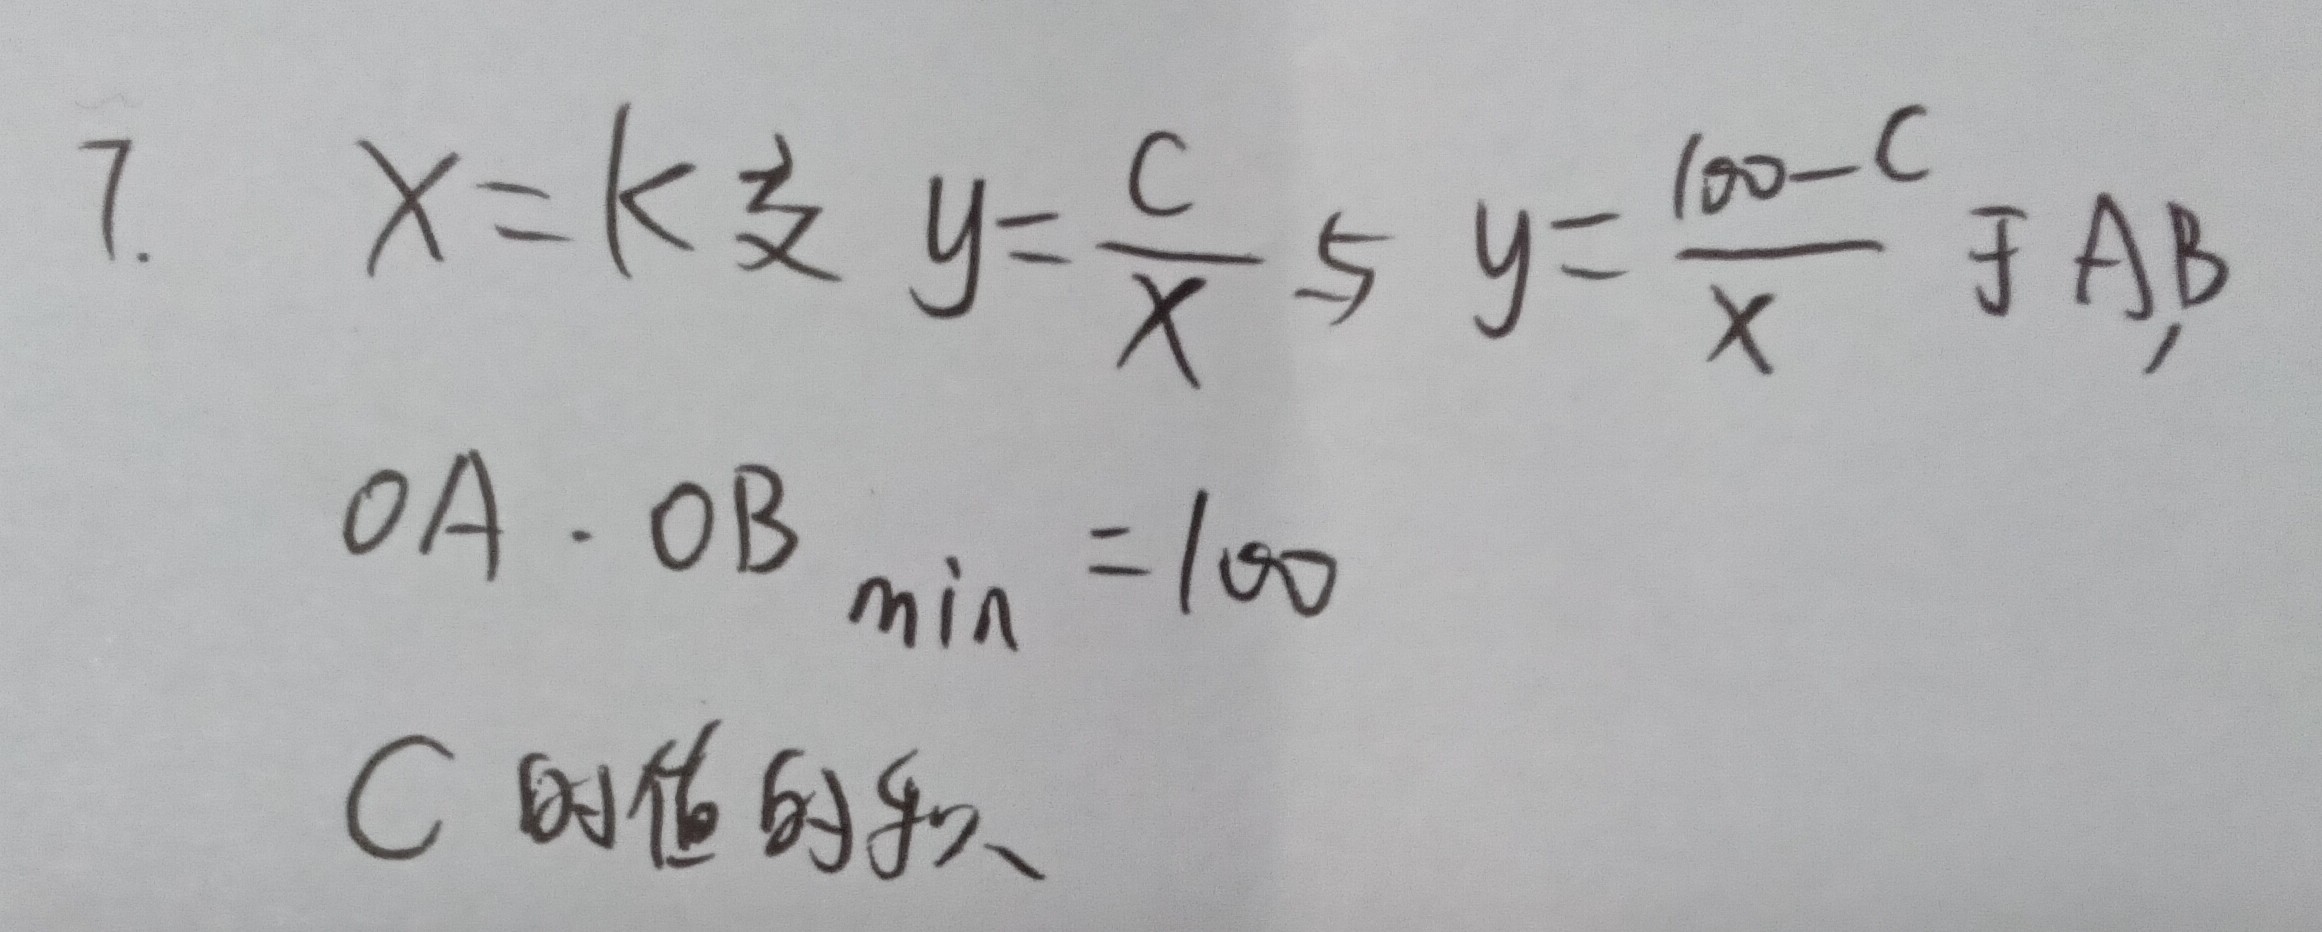 7. x=k交 y=C/x 与 y=(100-C)/x 于A,B
OA·OB min =100
C的值的积